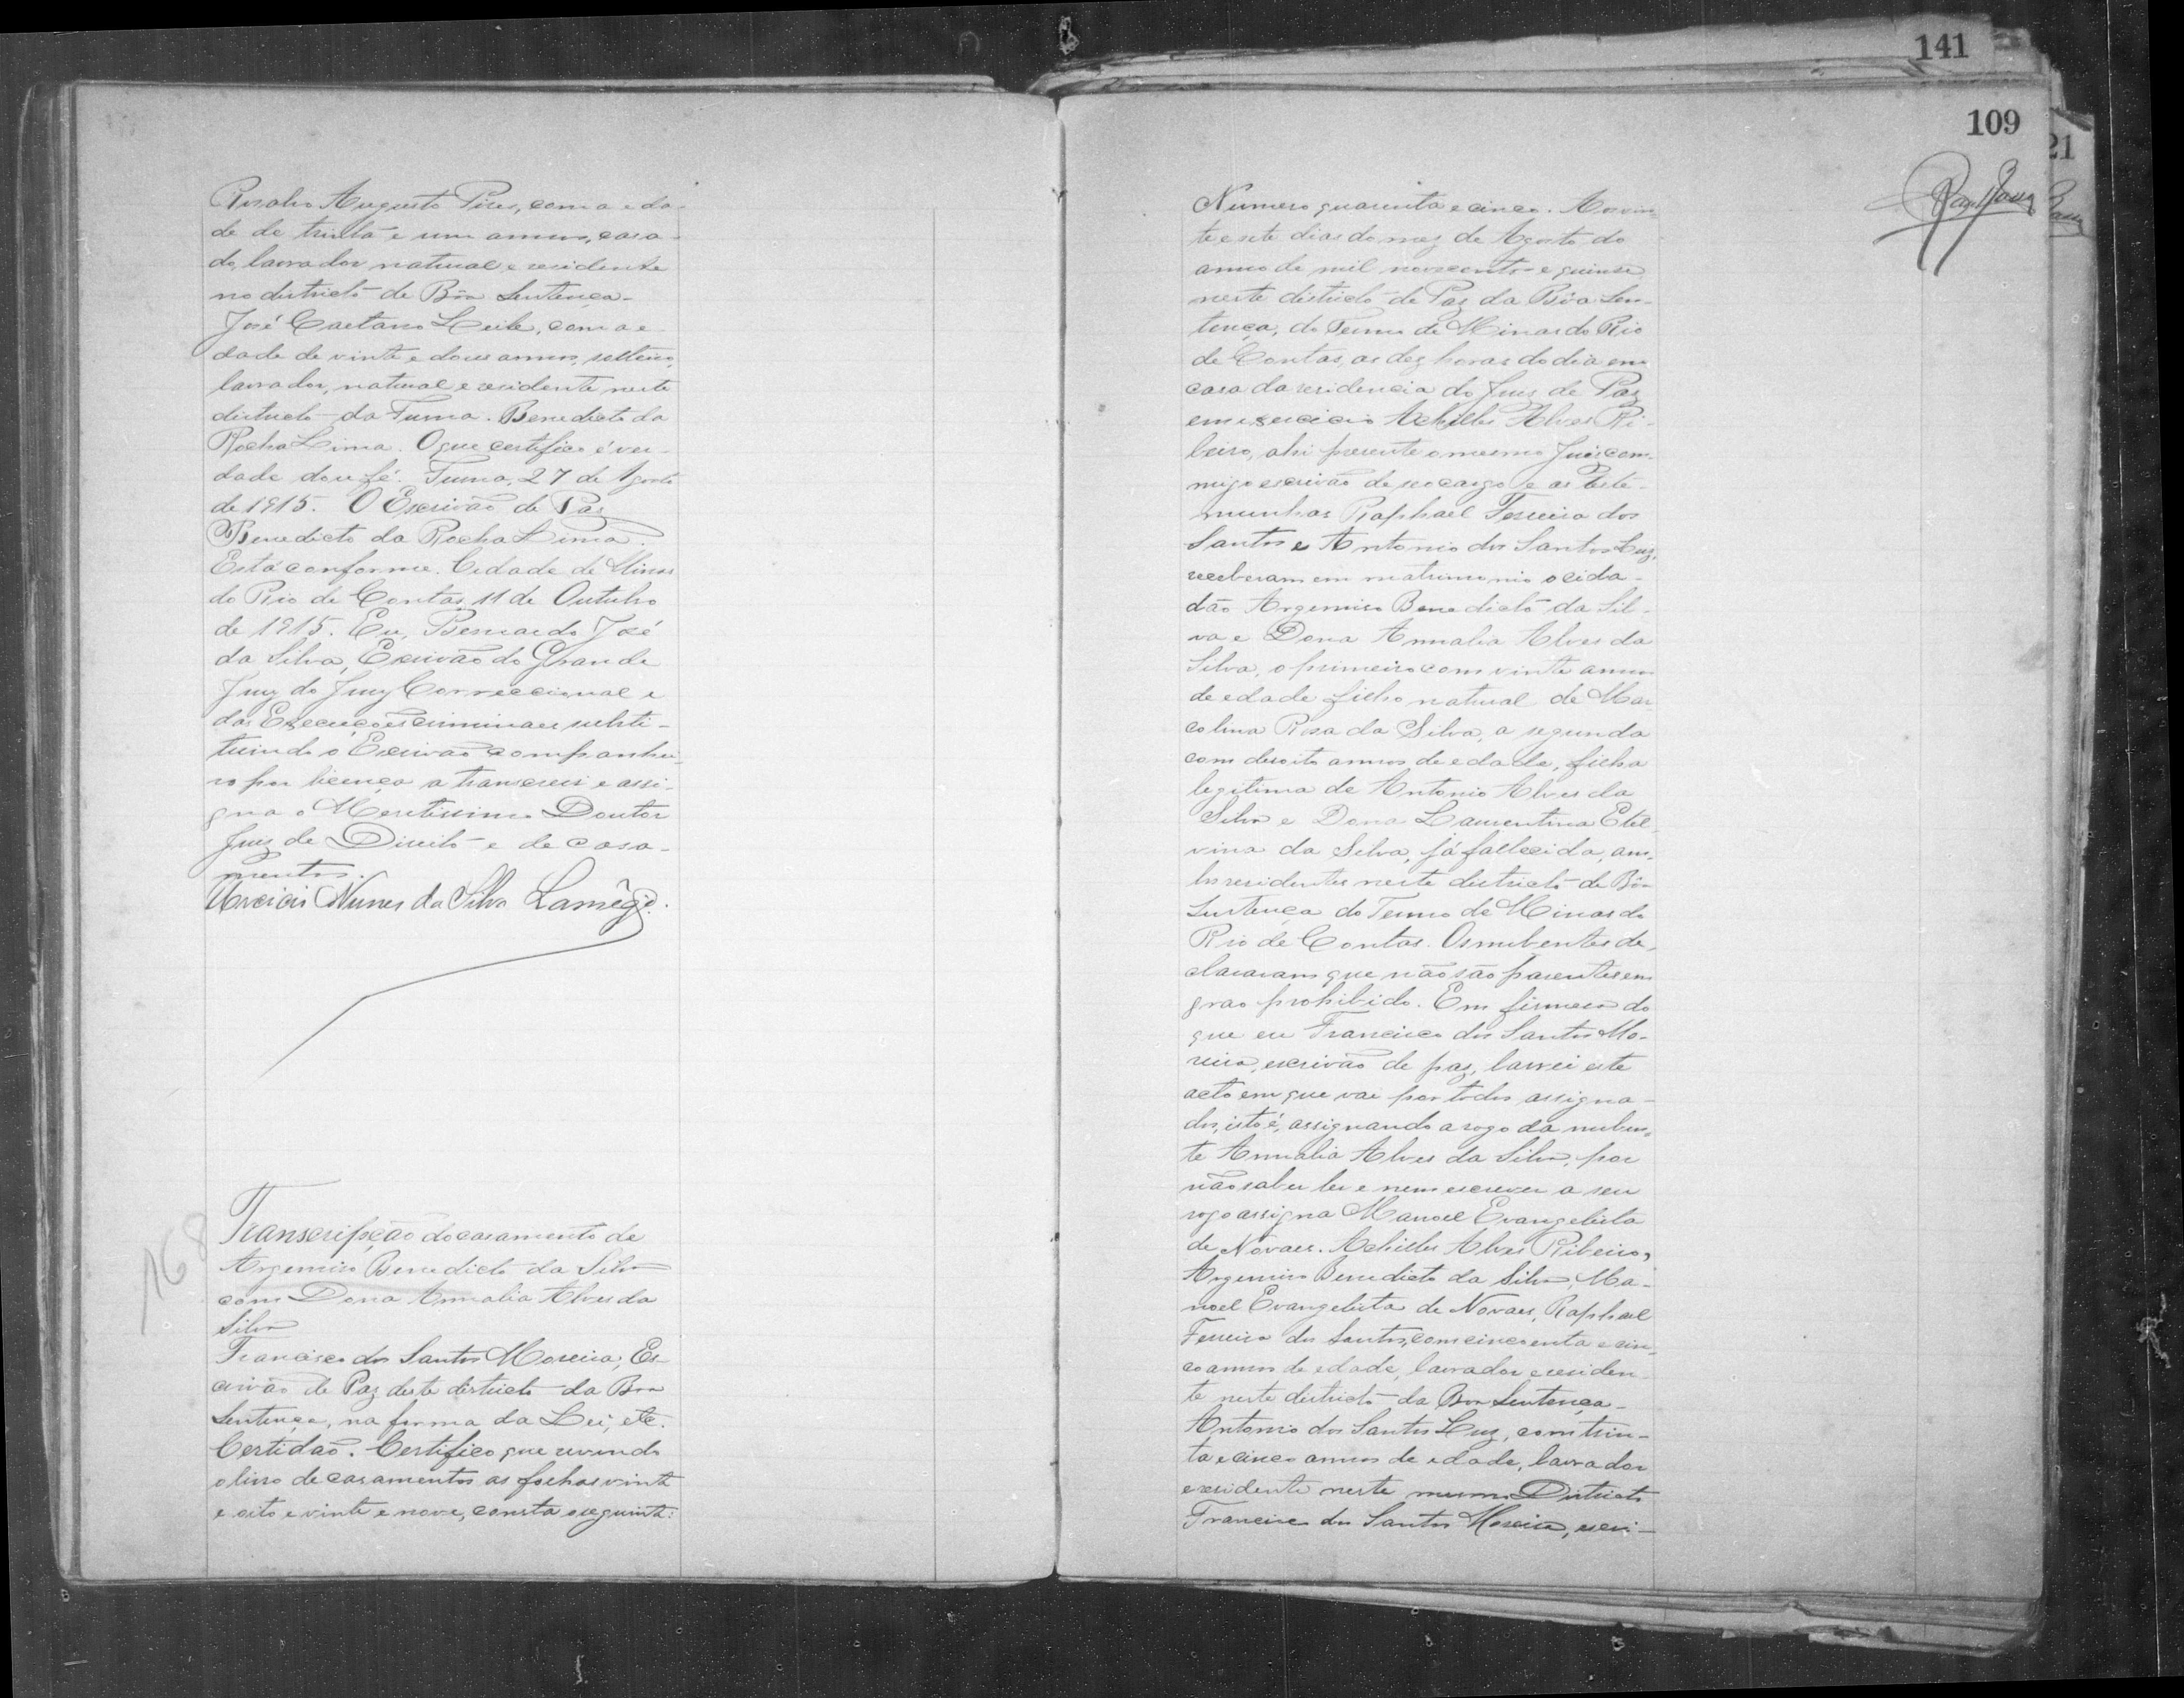 Rosalio Augusto Pires, com a eda-
de de trinta e um annos, casa-
do, lavrador natural e residente
no districto de Bôa Sentença-
José Caetano Leite, com a e-
dade de vinte e dous annos, solteiro,
lavrador, natural e residente neste
districto da Furna. Benedicto da
Rocha Lima. O que certifico é ver-
dade dou fé. Furna, 27 de Agosto
de 1915. O Escrivão de Paz
Benedicto da Rocha Lima.
Está conforme. Cidade de Minas
do Rio de Contas, 11 de Outubro
de 1915. Eu, Bernardo José
da Silva, Escrivão do Grande
Jury do Jury Correccional e
das Execuções criminaes substi-
tuindo o Escrivão companhei-
ro por licença a transcrevi e assi-
gna o Meretissimo Doutor
Juiz de Direito e de casa-
mentos.
Nunes da Silva Lamêgo.
168
Transcripção do casamento de
Argemiro Benedicto da Silva
com Dona Annalia Alves da
Silva
Francisco dos Santos Moreira, Es-
crivão de Paz deste districto da Boa
Sentença, na forma da Lei, etc.
Certidão. Certifico que revendo
o livro de casamentos as folhas vinte
e oito e vinte e nove, consta o seguinte:
141
109
21
Numero quarenta e cinco. Aos vin-
te e sete dias do mez de Agosto do
anno de mil novecentos e quinze
neste districto de Paz da Bôa Sen-
tença, do Termo de Minas do Rio
de Contas, as dez horas do dia em
casa da residencia do Juiz de Paz
em exercicio Achilles Alves Ri-
beiro, ahi presente o mesmo Juiz com-
migo escrivão de seo cargo e as teste-
munhas Raphael Ferreira dos
Santos e Antonio dos Santos Luz,
receberam em matrimonio o cida-
dão Argemiro Benedicto da Sil-
va e Dona Annalia Alves da
Silva, o primeiro com vinte annos
de edade filho natural de Mar
colina Rosa da Silva, a segunda
com desoito annos de edade, filha
legitima de Antonio Alves da
Silva e Dona Laurentina Etel-
vina da Silva, já fallecida, am-
bos residentes neste districto de Bôa
Sentença do Termo de Minas do
Rio de Contas. Os nubentes de-
clararam que não são parentes em
grao prohibido. Em firmesa do
que eu Francisco dos Santos Mo-
reira, escrivão de paz, lavrei este
acto em que vai por todos assigna-
dos, isto é, assignando a rogo da nuben-
te Annalia Alves da Silva, por
não saber ler e nem escrever a seu
rogo assigna Manoel Evangelista
de Novaes. Achilles Alves Ribeiro,
Argemiro Benedicto da Silva, Ma-
noel Evangelista de Novaes, Raphael
Ferreira dos Santos, com cincoenta e cin-
co annos de edade, lavrador e residen-
te neste districto da Boa Sentença-
Antonio dos Santos Luz, com trin-
ta e cinco annos de edade, lavrador
e residente neste mesmo Districto
Francisco dos Santos Moreira, escri-